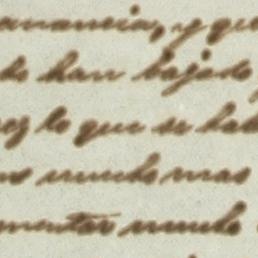 anancia, y que
do han bajado
ez lo que se hab
mucho mas
mentar mucho